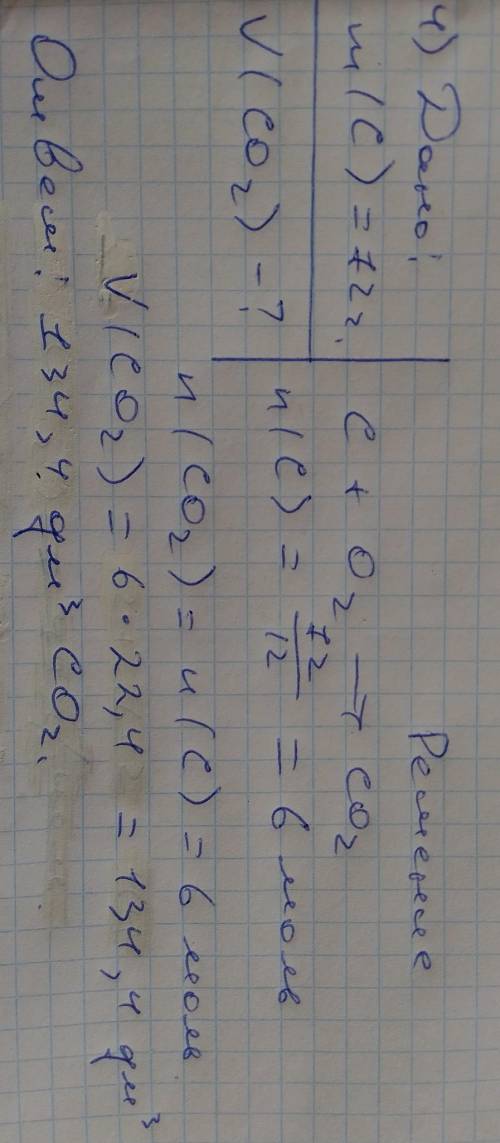 4) Дано:
m(C) = 72г.
V(CO2) - ?
Решение
C + O2 → CO2
n(C) = 72/12 = 6 моль
n(CO2) = n(C) = 6 моль
V(CO2) = 6 · 22,4 = 134,4 дм³
Ответ: 134,4 дм³ CO2.